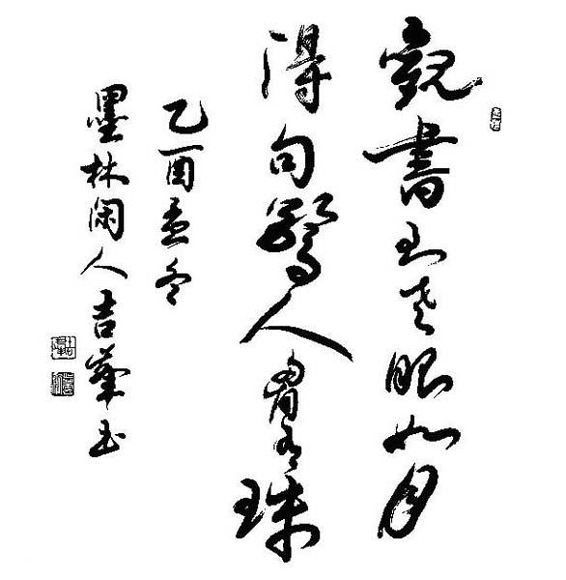 觀書到老眼如月
得句驚人胸有珠
乙酉孟冬
墨林闲人吉華书